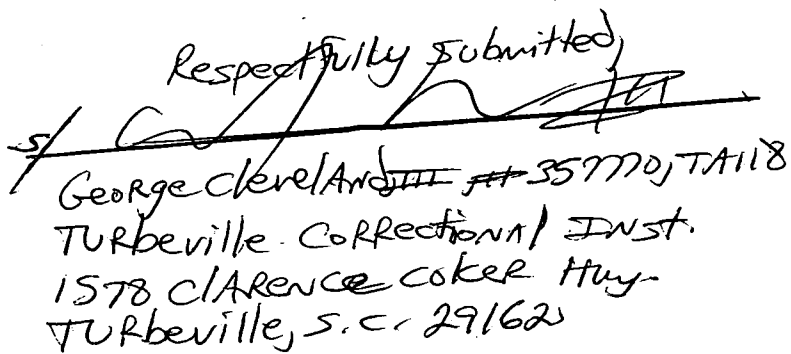 Respectfully Submitted,
S/
George Cleveland III # 357770, TA118
Turbeville Correctional Inst.
1578 Clarence Coker Hwy.
Turbeville, S.C. 29162